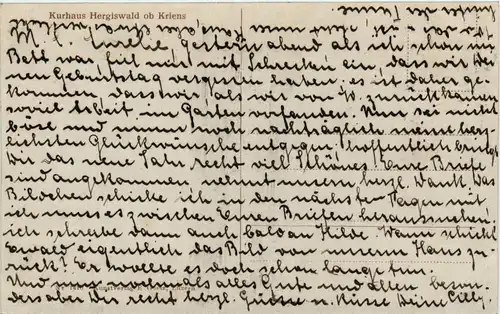 Kurhaus Hergiswald ob Kriens
M. l. Aurelie, gestern abend als ich schon im
Bett war, fiel mir mit Schrecken ein, dass wir Dei-
nen Geburtstag vergessen haben. es ist daher ge-
kommen, dass wir, als wir von zurückkamen
soviel Arbeit im Garten vorfanden. Nun sei nicht
böse und nimm noch nachträglich unsere herz-
lichsten Glückwünsche entgegen. hoffentlich bringt
Dir das neue Jahr recht viel Schönes. Eure Briefe
sind angekommen nehmt unsern herzl. Dank. Das
Bildchen schicke ich in den nächsten Tagen mit
ich muss es zwischen Euren Briefen heraussuchen.
ich schreibe dann auch bald an Hilde. Wann schickt
Ewald eigentlich das Bild von unserm Haus zu-
rück? Er wollte es doch schon lange tun.
Und nun nochmals alles Gute und allen beson-
ders aber Dir recht herzl. Grüsse u. Küsse Deine Cilly.